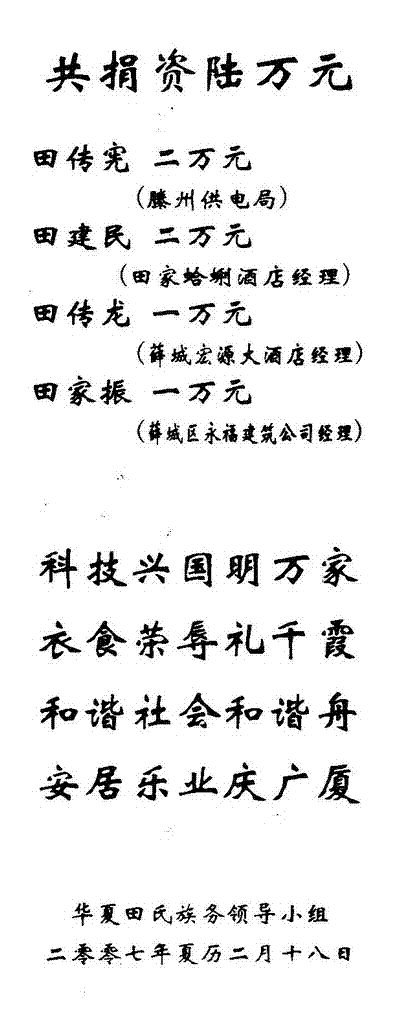 共捐资陆万元
田传宪 二万元
(滕州供电局)
田建民 二万元
(田家蛤蜊酒店经理)
田传龙 一万元
(薛城宏源大酒店经理)
田家振 一万元
(薛城区永福建筑公司经理)
科技兴国明万家
衣食荣辱礼千霞
和谐社会和谐舟
安居乐业庆广厦
华夏田氏族务领导小组
二零零七年夏历二月十八日